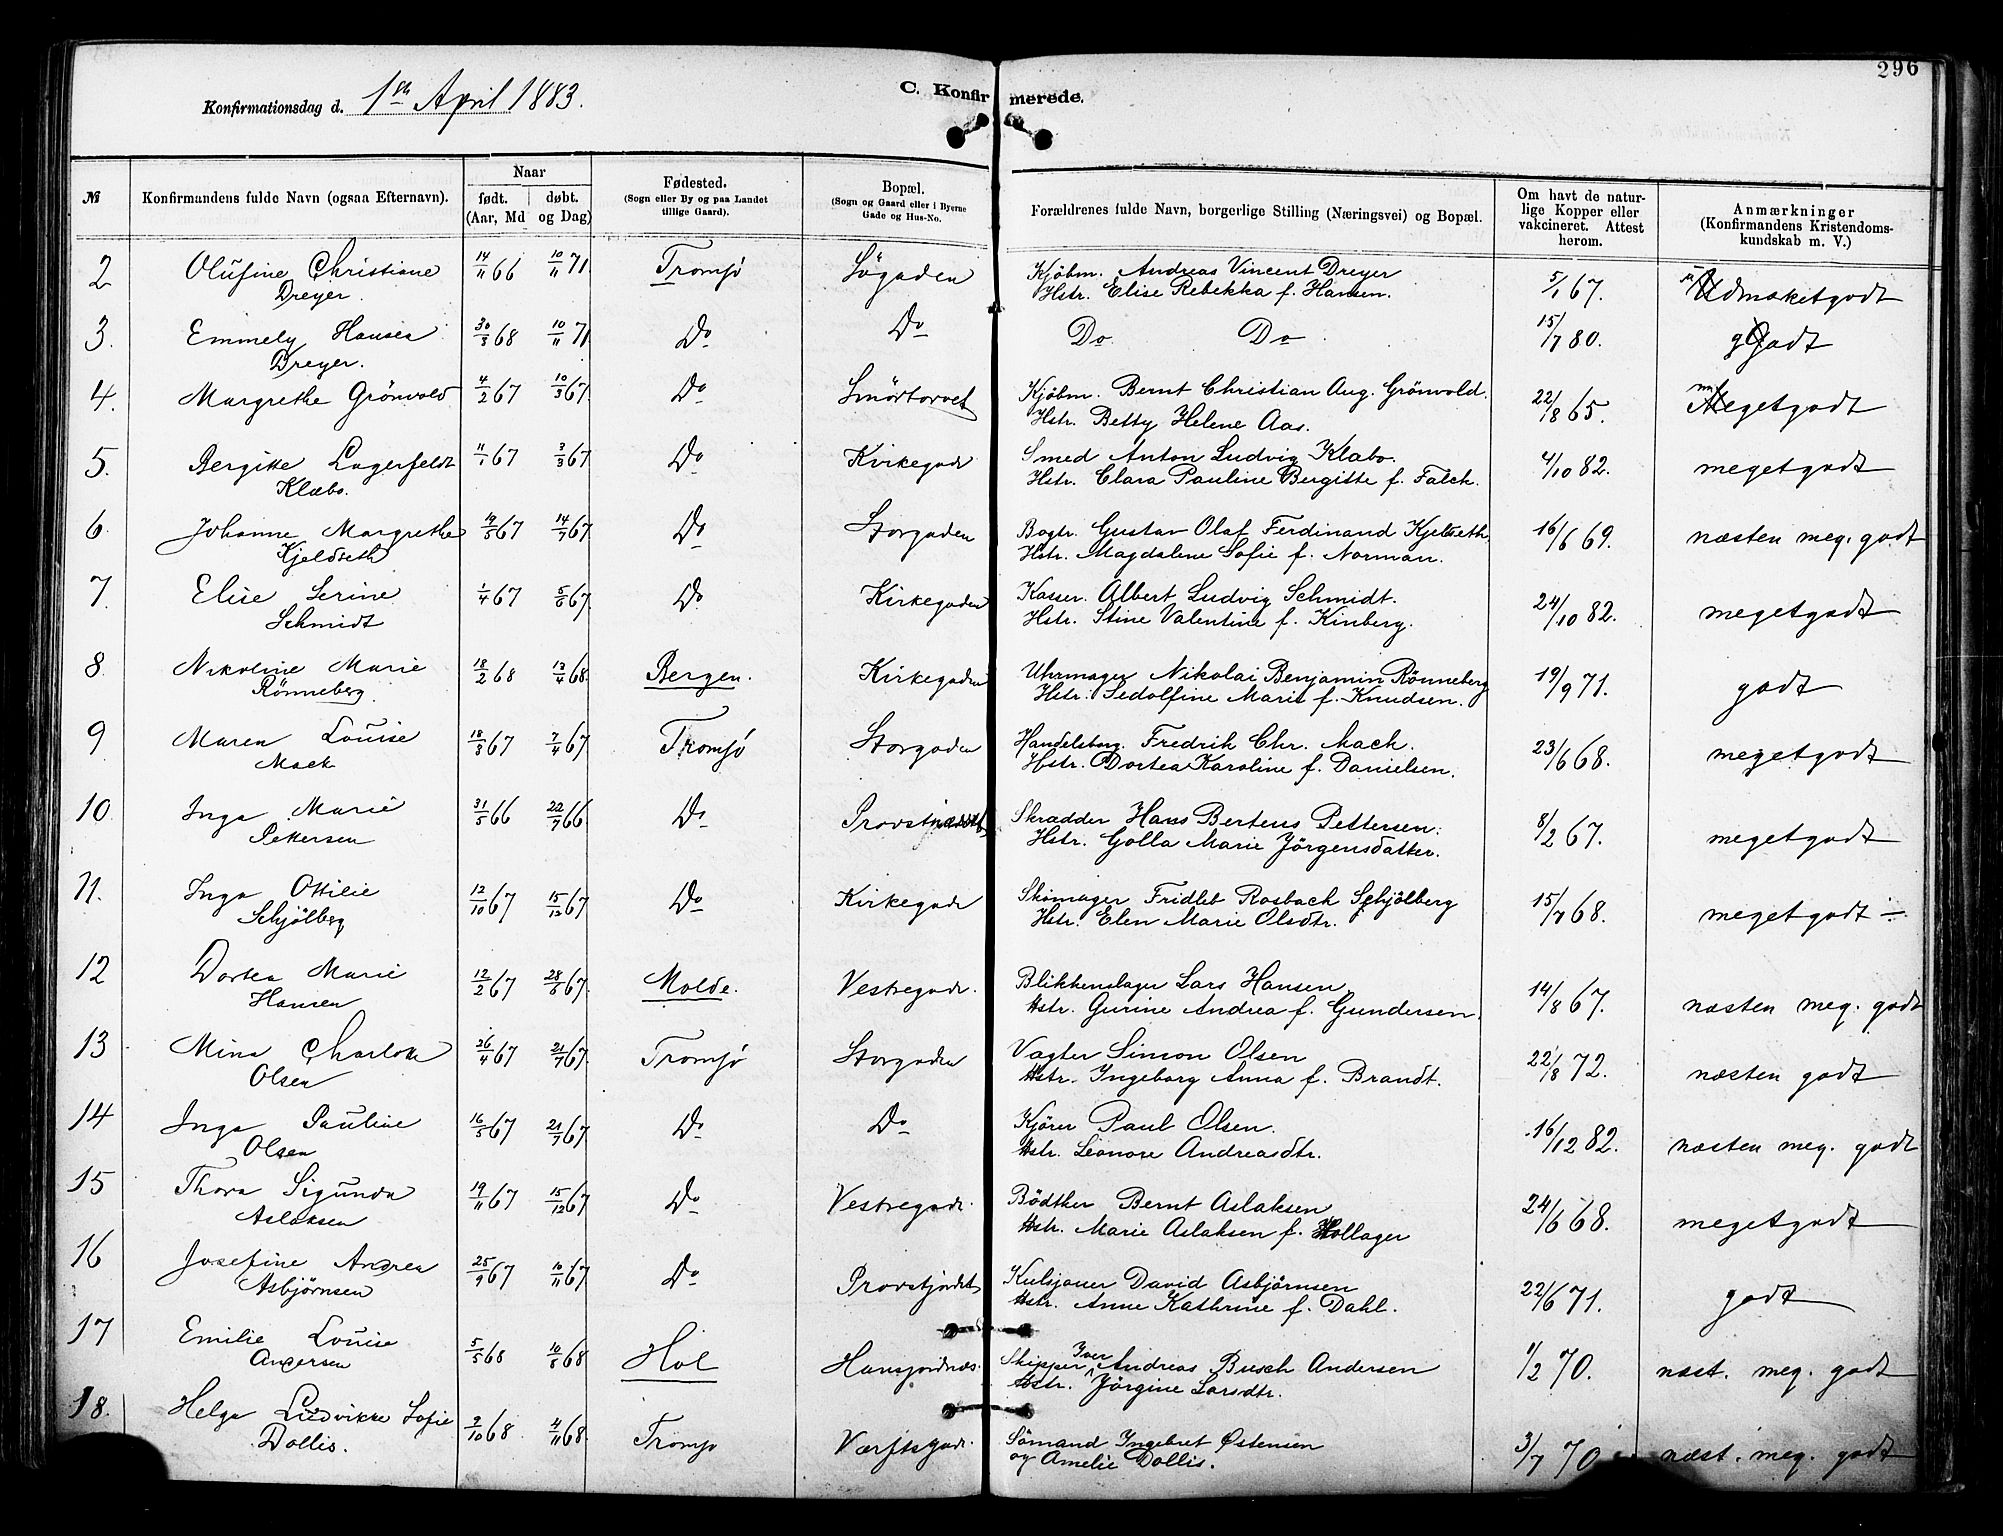 296
Konfirmationsdag d. 1ste April 1883.
C. Konfirmerede.
№ | Konfirmandens fulde Navn (ogsaa Efternavn). | Naar født. (Aar, Md | døbt. og Dag) | Fødested. (Sogn eller By og paa Landet tillige Gaard). | Bopæl. (Sogn og Gaard eller i Byerne Gade og Hus-No. | Forældrenes fulde Navn, borgerlige Stilling (Næringsvei) og Bopæl. | Om havt de naturlige Kopper eller vakcineret. Attest herom. | Anmærkninger (Konfirmandens Kristendomskundskab m. V.)
2 Olufine Christiane 14/11 66 10/11 71 Tromsö Sögaden Kjöbm. Andreas Vincent Dreyer 5/1 67. Udmærketgodt
Dreyer. Hstr. Elise Rebekka f. Hansen.
3. Emmely Hansea 30/3 68 10/11 71 Do Do Do Do 15/7 80. godt
Dreyer.
4. Margrethe Grönvold 4/2 67 10/3 67 Do Smörtorvet Kjöbm. Bernt Christian Aug. Grönvold. 22/8 65. Megetgodt
Hstr. Betty Helene Aas.
5. Bergitte Lagerfeldt 11/1 67 3/3 67 Do Kirkegade Smed Anton Ludvig Klæbo. 4/10 82. megetgodt
Klæbo. Hstr. Clara Pauline Bergitte f. Falch.
6. Johanne Margrethe 19/5 67 14/7 67 Do Storgaden Bogtr. Gustav Olaf Ferdinand Kjeldseth 16/6 69. næsten meg. godt
Kjeldseth Hstr. Magdalene Sofie f. Norman.
7. Elise Serine 1/4 67 5/6 67 Do Kirkegaden Kasser. Albert Ludvig Schmidt. 24/10 82. megetgodt
Schmidt Hstr. Stine Valentine f. Kinberg.
8 Nikoline Marie 18/2 68 13/4 68 Bergen. Kirkegaden Uhrmager Nikolai Benjamin Rönneberg 19/9 71. godt
Rönneberg Hstr. Sedolfine Marie f. Knudsen.
9 Maren Louise 18/3 67 7/4 67 Tromsö Storgaden Handelsborg. Fredrik Chr. Mack. 23/6 68. megetgodt
Mack Hstr. Dortea Karoline f. Danielsen.
10 Inga Marie 31/5 66 22/7 66 Do Skrædder Hans Berteus Pettersen. 8/2 67. megetgodt
Pettersen Hstr. Golla Marie Jörgensdatter.
11. Inga Ottilie 12/10 67 15/12 67 Do Kirkegade Skomager Fridlet Rosbach Schjölberg 15/7 68. megetgodt ÷
Schjölberg Hstr. Elen Marie Olsdtr.
12 Dortea Marie 12/2 67 28/6 67 Molde. Vestregade. Blikkenslager Lars Hansen 14/8 67. næsten meg. godt
Hansen Hstr. Gurine Andrea f. Gundersen.
13 Mina Charlotte 26/4 67 21/7 67 Tromsö Storgaden Vagter Simon Olsen 22/8 72. næsten godt
Olsen Hstr. Ingeborg Anna f. Brandt.
14 Inga Pauline 16/5 67 21/7 67 Do Do Kjörer Paul Olsen. 16/12 82. næsten meg. godt
Olsen Hstr. Leonore Andreasdtr.
15 Thora Sigunda 19/11 67 15/12 67 Do Vestregade. Bödtker Bernt Aslaksen 24/6 68. megetgodt
Aslaksen Hstr. Marie Aslaksen f. Hollager
16 Josefine Andrea 25/9 67 10/11 67 Do Provstjordet Kulsjouer David Asbjörnsen 22/6 71. godt
Asbjørnsen Hstr. Anne Kathrine f. Dahl.
17 Emilie Louise 5/5 68 10/5 68 Hol Hansjordnæs. Skipper Iver Andreas Busch Andersen 1/2 70. næst. meg. godt
Andersen Hstr. Jörgine Larsdtr.
18. Helga Ludvikke Sofie 2/10 68 4/11 68 Tromsö Værftsgade. Sömand Ingebret Østensen 3/7 70 næst. meg. godt
Dollis. og Amelie Dollis.